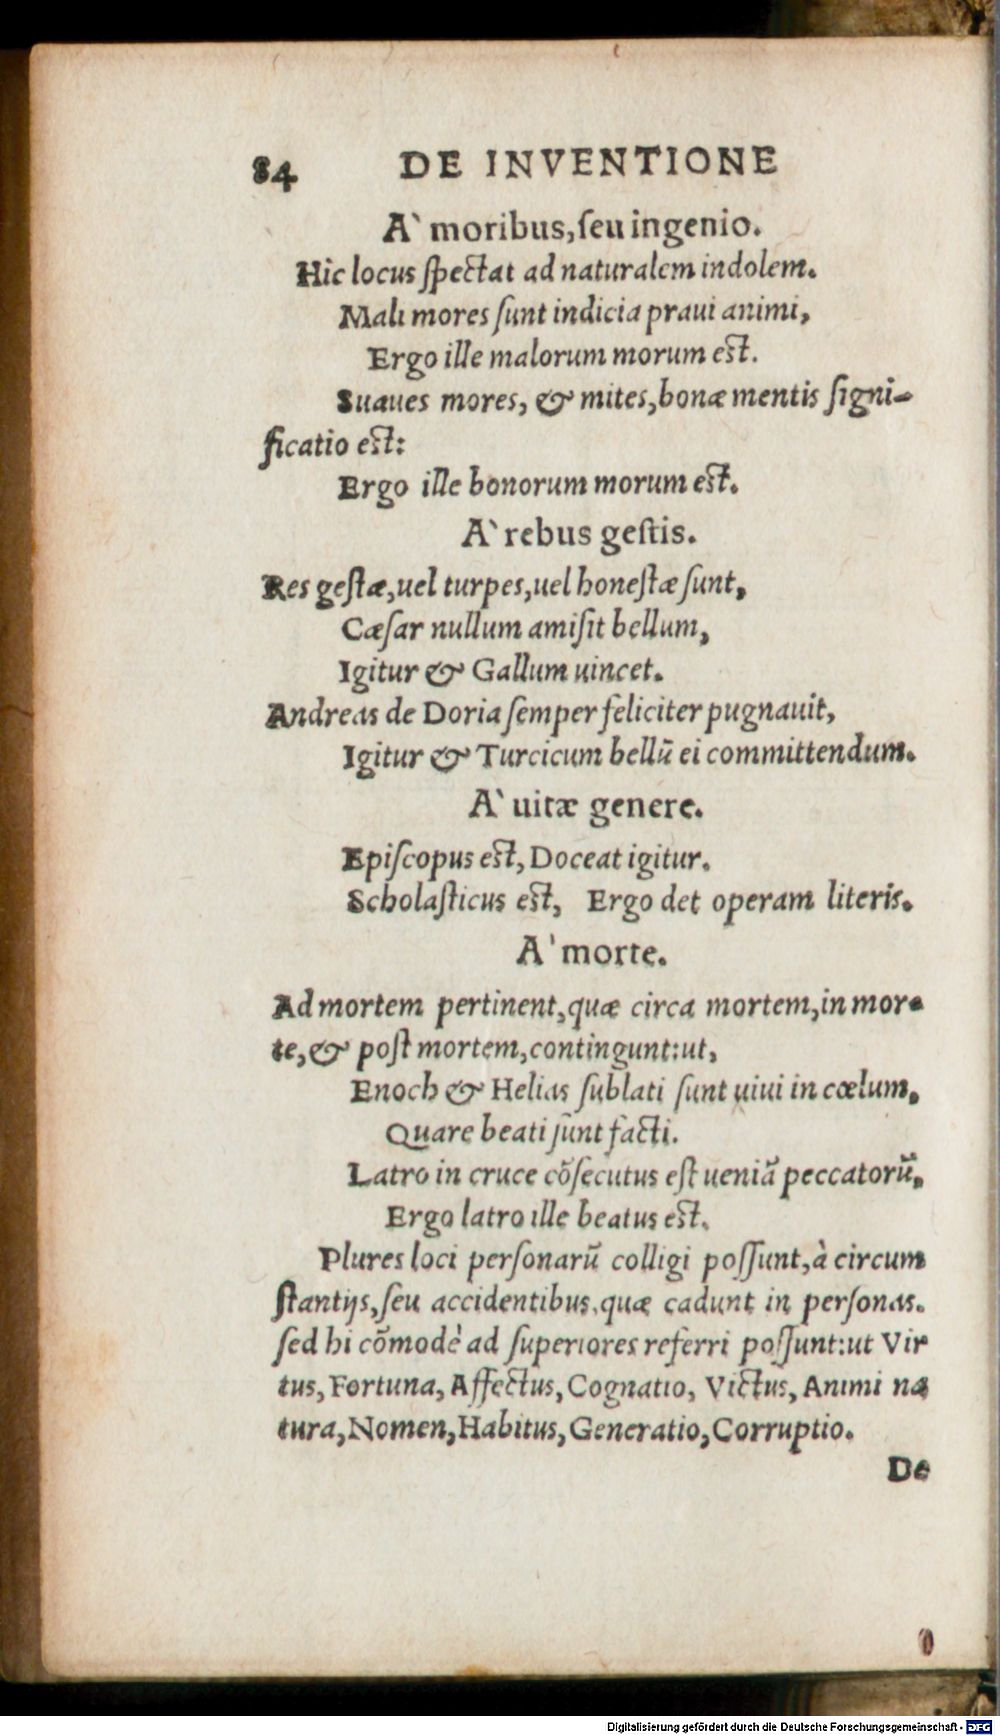 84 DE INVENTIONE
A` moribus, ſeu ingenio.
Hic locus ſpectat ad naturalem indolem.
Mali mores ſunt indicia praui animi,
Ergo ille malorum morum eſt.
Suaues mores, & mites, bonæ mentis ſigni-
ficatio eſt:
Ergo ille bonorum morum eſt.
A` rebus geſtis.
Res geſtæ, uel turpes, uel honeſtæ ſunt,
Cæſar nullum amiſit bellum,
Igitur & Gallum uincet.
Andreas de Doria ſemper feliciter pugnauit,
Igitur & Turcicum bellū ei committendum.
A` uitæ genere.
Epiſcopus eſt, Doceat igitur.
Scholaſticus eſt, Ergo det operam literis.
A` morte.
Ad mortem pertinent, quæ circa mortem, in mor-
te, & poſt mortem, contingunt: ut,
Enoch & Helias ſublati ſunt uiui in cœlum,
Quare beati ſunt facti.
Latro in cruce cōſecutus eſt ueniā peccatorū,
Ergo latro ille beatus eſt.
Plures loci perſonarū colligi poſſunt, à circum
ſtantijs, ſeu accidentibus, quæ cadunt in perſonas.
ſed hi cōmodè ad ſuperiores referri poſſunt: ut Vir
tus, Fortuna, Affectus, Cognatio, Victus, Animi na
tura, Nomen, Habitus, Generatio, Corruptio.
De
Digitalisierung gefördert durch die Deutsche Forschungsgemeinschaft - DFG